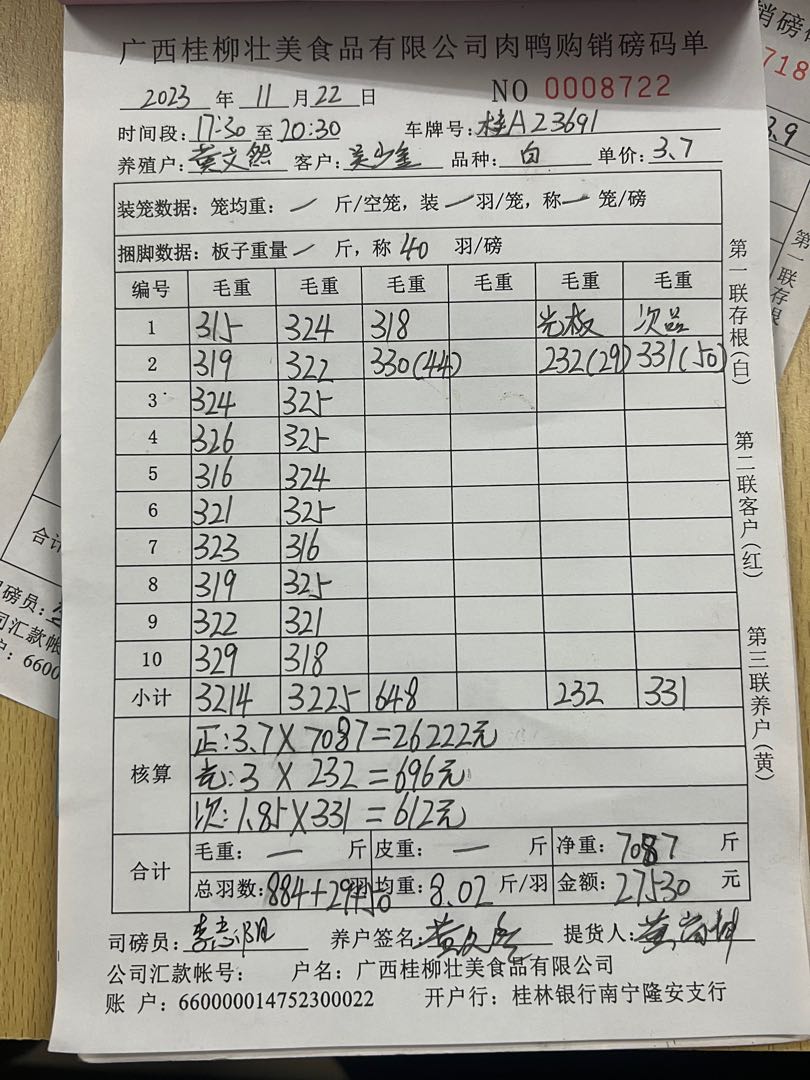 广西桂柳壮美食品有限公司肉鸭购销磅码单
2023 年 11 月 22 日 NO 0008722
时间段: 17:30 至 20:30 车牌号: 桂A23691
养殖户: 黄文然 客户: 吴少金 品种: 白 单价: 3.7
装笼数据: 笼均重: — 斤/空笼, 装 — 羽/笼, 称 — 笼/磅
捆脚数据: 板子重量 — 斤, 称 40 羽/磅
编号 毛重 毛重 毛重 毛重 毛重 毛重
1 315 324 318 光板 次品
2 319 322 330(44) 232(29) 331(50)
3 324 325
4 326 325
5 316 324
6 321 325
7 323 316
8 319 325
9 322 321
10 329 318
小计 3214 3225 648 232 331
核算
正:3.7×7087=26222元
光:3×232=696元
次:1.85×331=612元
合计
毛重: — 斤 皮重: — 斤 净重: 7087 斤
总羽数: 884+29+50 羽 均重: 8.02 斤/羽 金额: 27530 元
司磅员: 养户签名: 提货人:
公司汇款帐号: 户名: 广西桂柳壮美食品有限公司
账 户: 660000014752300022 开户行: 桂林银行南宁隆安支行
第一联存根(白)
第二联客户(红)
第三联养户(黄)
销磅
718
3.9
第一联存根
合计
磅员:
司汇款帐
户: 6600